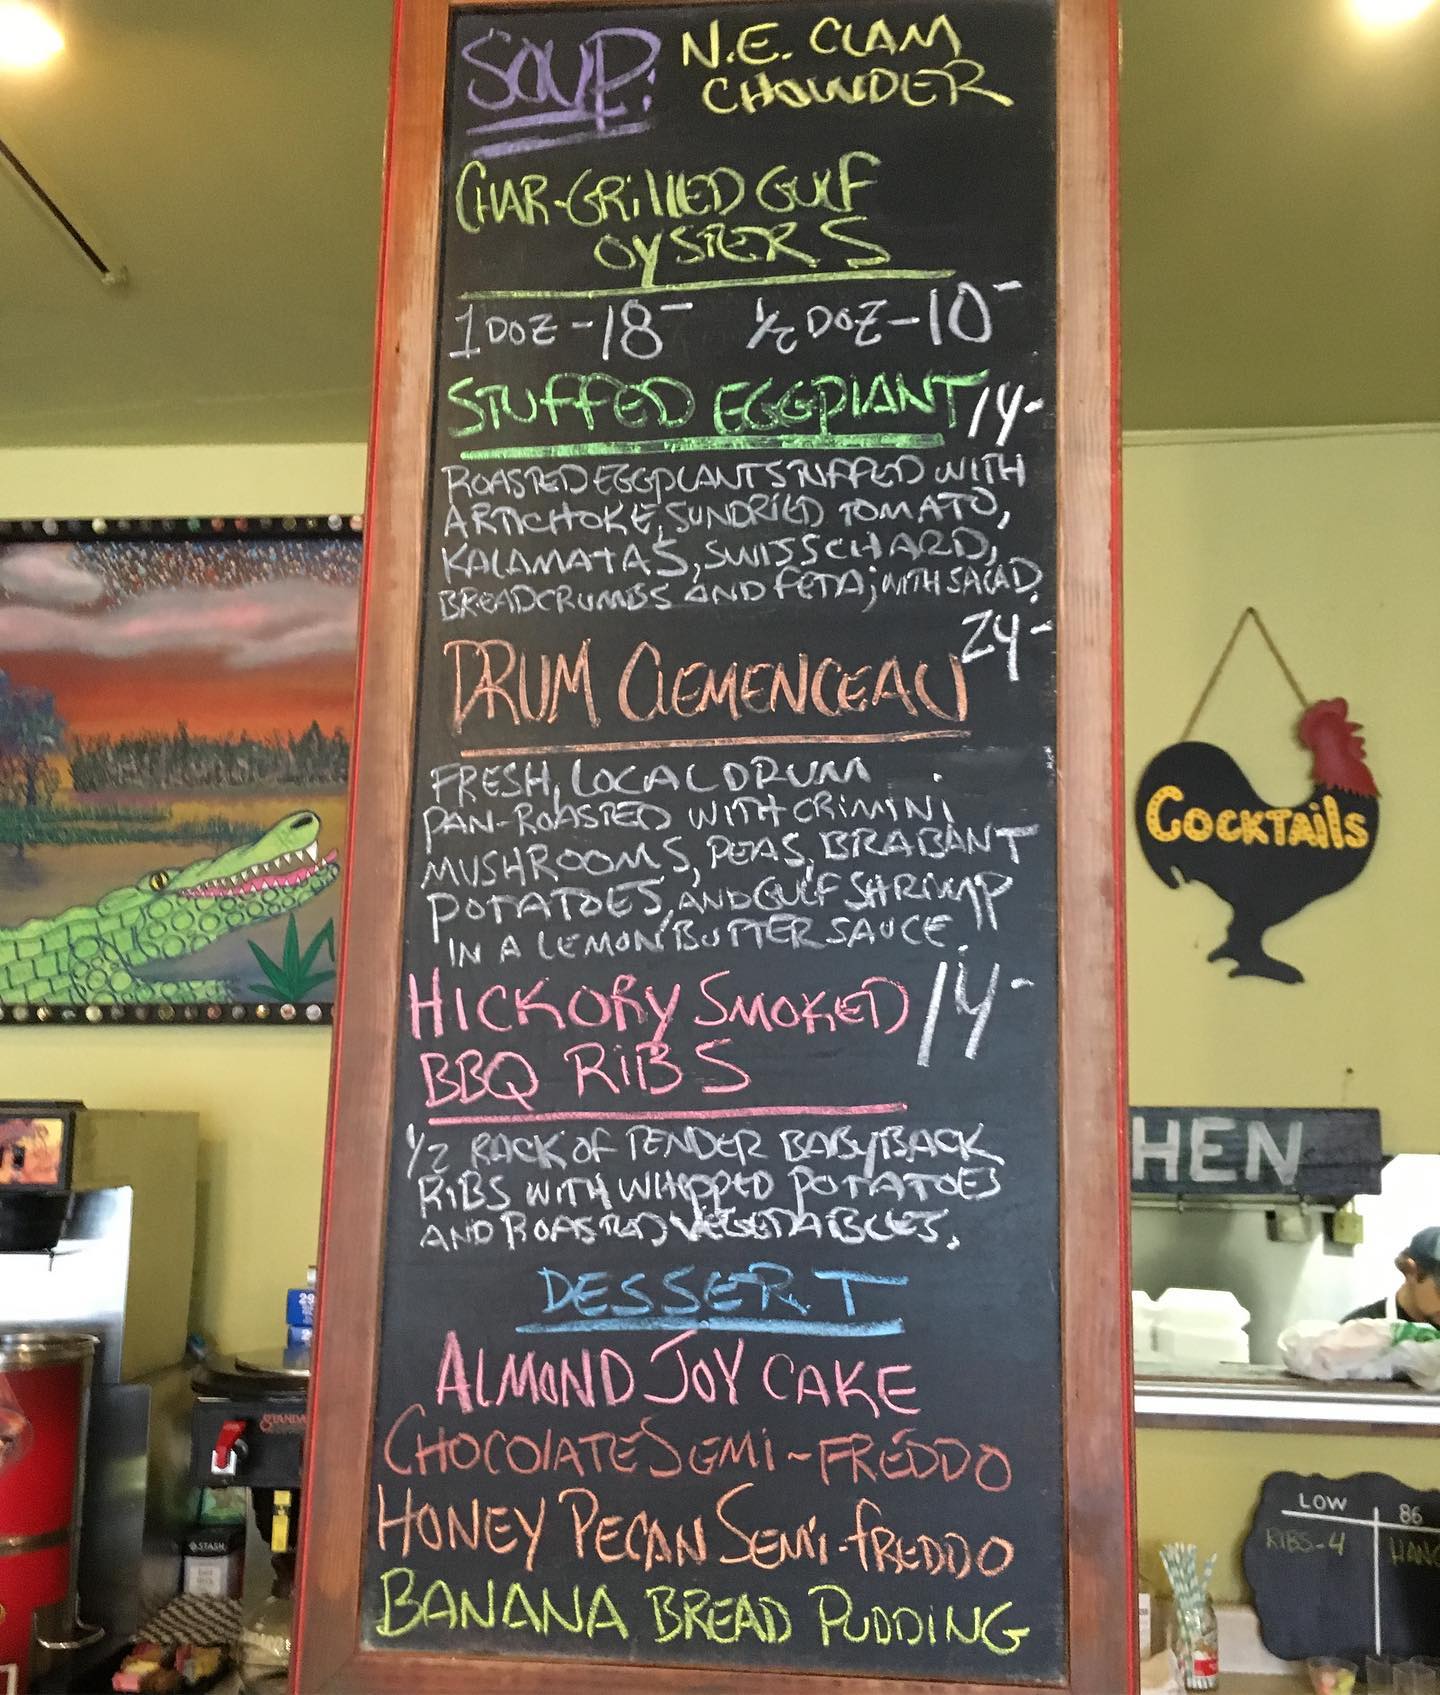 SOUP: N.E. CLAM
CHOWDER
CHAR-GRILLED GULF
OYSTERS
1 DOZ - 18- 1/2 DOZ - 10-
STUFFED EGGPLANT 14-
ROASTED EGGPLANT STUFFED WITH
ARTICHOKE, SUNDRIED TOMATO,
KALAMATAS, SWISS CHARD,
BREADCRUMBS AND FETA; WITH SALAD.
24-
DRUM CLEMENCEAU
FRESH, LOCAL DRUM
PAN-ROASTED WITH CRIMINI
MUSHROOMS, PEAS, BRABANT
POTATOES, AND GULF SHRIMP
IN A LEMON BUTTER SAUCE.
HICKORY SMOKED 14-
BBQ RIBS
1/2 RACK OF TENDER BABYBACK
RIBS WITH WHIPPED POTATOES
AND ROASTED VEGETABLES.
DESSERT
ALMOND JOY CAKE
CHOCOLATE SEMI-FREDDO
HONEY PECAN SEMI-FREDDO
BANANA BREAD PUDDING
COCKTAILS
HEN
LOW 86
RIBS-4
STASH